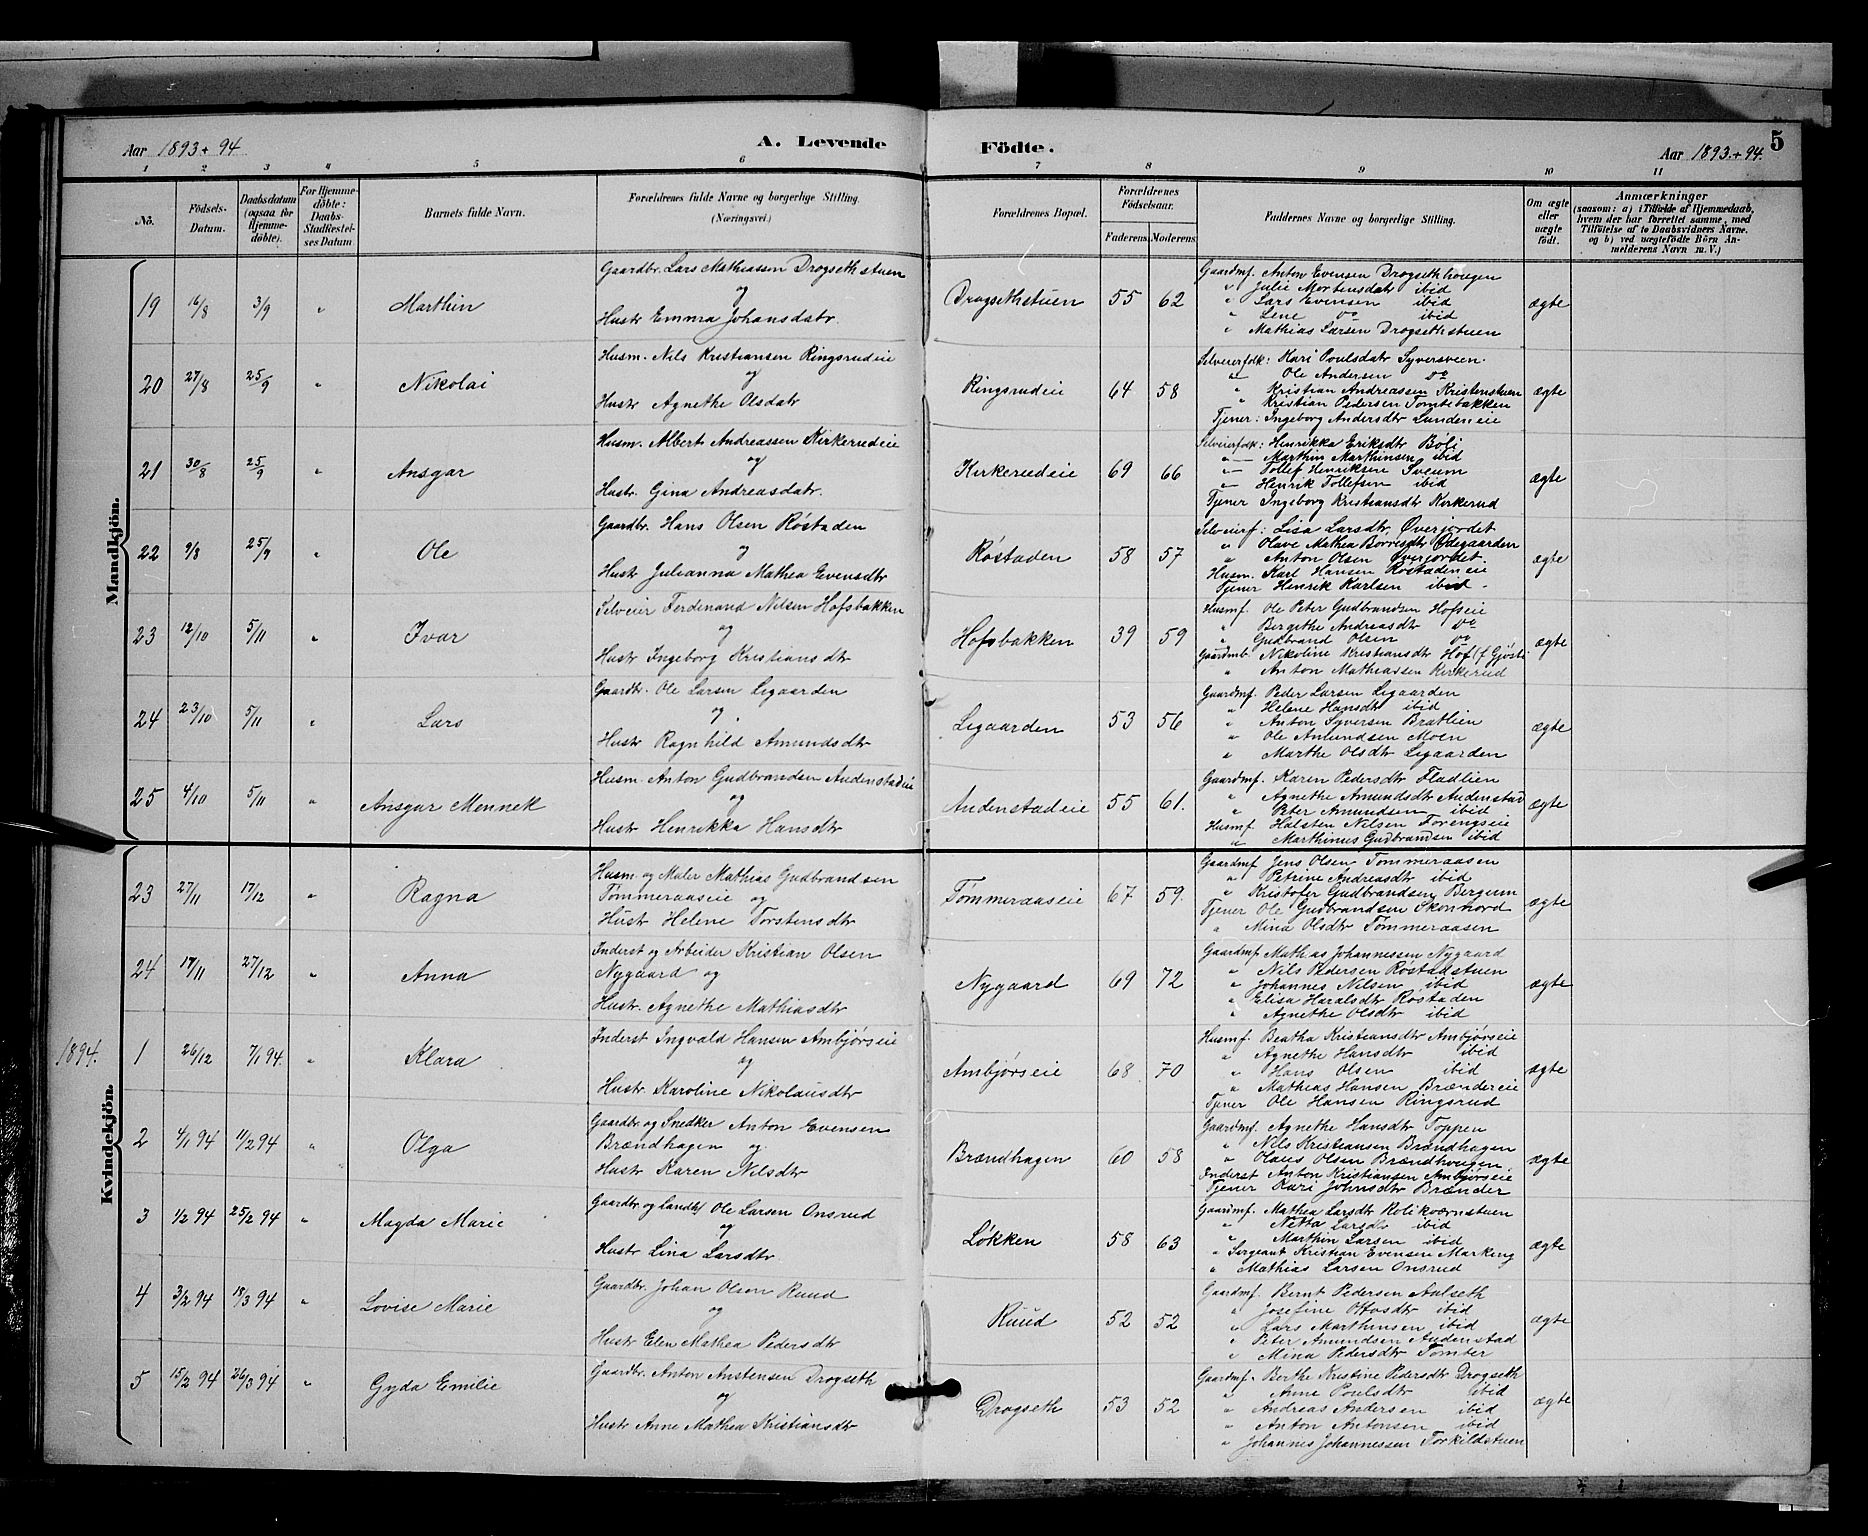 Aar 1893 + 94
A. Levende
Födte.
Aar 1893 + 94.
5
1 2 3 4 5 6 7 8 9 10 11
No.
Födsels-Datum.
Daabsdatum (ogsaa for Hjemme-döbte).
For Hjemme-döbte: Daabs-Stadfæstel-ses Datum
Barnets fulde Navn.
Forældrenes fulde Navne og borgerlige Stilling. (Næringsvei.)
Forældrenes Bopæl.
Forældrenes Födselsaar.
Faderens Moderens
Faddernes Navne og borgerlige Stilling.
Om ægte eller uægte födt.
Anmærkninger
(saasom: a) i Tilfælde af Hjemmedaab, hvem der har forrettet samme, med Tilföielse af to Daabsvidners Navne. og b) ved uægtefödte Börn An-melderens Navn m. V.)
Mandkjön.
19 16/8 3/9 " Marthin
Gaardbr. Lars Mathiassen Drogsethstuen
og
Hustr Emma Johansdatr.
Drogsethstuen 55 62
Gaardmf. Anton Evensen Drogsethhougen
" Julie Mortensdatr ibid
" Lars Evensen ibid
" Lene do ibid
" Mathias Larsen Drogsethstuen
ægte
20 27/8 25/9 " Nikolai
Husm. Nils Kristiansen Ringsrudeie
og
Hustr Agnethe Olsdatr
Ringsrudeie 64 58
Selveierfolk: Mari Poulsdatr Syversveen
" Ole Andersen do
" Kristian Andreassen Kristenstuen
" Kristian Pedersen Tomtebakken
Tjener: Ingeborg Andersdtr Lundeneie
ægte
21 30/8 25/9 " Ansgar
Husm. Albert Andreassen Kirkerudeie
og
Hustr. Gina Andreasdatr.
Kirkerudeie 69 66
Selveierfolk: Henrikka Eriksdtr Böli
" Marthin Marthinsen ibid
" Tollef Henriksen Sveum
" Henrik Tollefsen ibid
Tjener Ingeborg Kristiansdtr Kirkerud
ægte
22 9/8 25/9 " Ole
Gaardbr. Hans Olsen Röstaden
og
Hustr Julianna Mathea Evensdtr
Röstaden 58 57
Selveierf: Lisa Larsdtr Överjordet
" Olave Mathea Borresdtr Ödegaarden
" Anton Olsen Överjordet
Husm. Karl Hansen Röstadeneie
Tjener Henrik Karlsen ibid
ægte
23 12/10 5/11 " Ivar
Selveier Ferdinand Nilsen Hofsbakken
og
Hustr Ingeborg Kristiansdtr
Hofsbakken 39 59
Husmf. Ole Peter Gudbrandsen Hofseie
" Bergithe Andreasdtr do
" Gudbrand Olsen do
Gaardmb. Nikoline Kristiansdtr Hof
" Anton Mathiassen Kirkerud
ægte
24 23/10 5/11 " Lars
Gaardbr. Ole Larsen Ligaarden
og
Hustr Ragnhild Amundsdtr
Ligaarden 53 56
Gaardmf. Peder Larsen Ligaarden
" Helene Hansdtr ibid
" Anton Syversen Bratlien
" Ole Amundsen Moen
" Marthe Olsdtr Ligaarden
ægte
25 4/10 5/11 " Ansgar Mennek
Husm. Anton Gudbrandsen Audenstadeie
og
Hustr Henrikka Hansdtr
Audenstadeie 55 61.
Gaardmf. Karen Pedersdtr Fladlien
" Agnethe Amundsdtr Audenstad
" Peter Amundsen ibid
Husmf. Halsten Nilsen Forengseie
" Marthinus Gudbrandsen ibid
ægte
Kvindekjön.
23 27/11 17/12 " Ragna
Husm og Maler Mathias Gudbrandsen
Tömmeraaseie og
Hustr Helene Torstensdtr
Tömmeraaseie 67 59.
Gaardmf Jens Olsen Tømmeraasen
" Petrine Andreasdtr ibid
" Kristofer Gudbrandsen Bergum
Tjener Ole Gudbrandsen Skonnord
" Mina Olsdtr Tömmeraasen
ægte
24 17/11 27/12 " Anna
Inderst og Arbeider Kristian Olsen
Nygaard og
Hustr. Agnethe Mathiasdtr
Nygaard 69 72
Gaardmf Mathias Johannessen Nygaard
" Nils Pedersen Röstadstuen
" Johannes Nilsen ibid
" Elisa Haralsdtr Röstaden
" Agnethe Olsdtr ibid
ægte
1894.
1 26/12 7/1 94 " Klara
Inderst Ingvald Hansen Ambjörseie
og
Hustr. Karoline Nikolausdtr
Ambjörseie 68 70
Husmf. Beatha Kristiansdtr Ambjörseie
" Agnethe Hansdtr ibid
" Hans Olsen ibid
" Mathias Hansen Brændereie
Tjener Ole Hansen Ringsrud
ægte
2 4/1 94 11/2 94 " Olga
Gaardbr og Snedker Anton Evensen
Brændhagen og
Hustr Karen Nilsdtr
Brændhagen 60 58
Gaardmf. Agnethe Hansdtr Toppen
" Nils Kristiansen Brændhagen
" Olaus Olsen Brændhougen
Inderst Anton Kristiansen Ambjörseie
Tjener Kari Johnsdtr Brænder
ægte
3 1/2 94 25/2 94 " Magda Marie
Gaardbr og Landh/ Ole Larsen Onsrud
og
Hustr Lina Larsdtr.
Lökken 58 63
Gaardmf. Mathea Larsdtr Holikværnstuen
" Netta Larsdtr ibid
" Marthin Larsen ibid
" Sergeant Kristian Evensen Markeng
" Mathias Larsen Onsrud
ægte
4 3/2 94 18/3 94 " Lovise Marie
Gaardbr. Johan Olsen Ruud
og
Hustr Elen Mathea Pedersdtr
Ruud 52 52
Gaardmf. Bernt Pedersen Aulseth
" Josefine Ottosdtr ibid
" Lars Marthinsen ibid
" Peter Amundsen Audenstad
" Mina Pedersdtr Tomter
ægte
5 15/2 94 26/3 94 " Gyda Emilie
Gaardbr. Anton Anstensen Drogseth
og
Hustr Anne Mathea Kristiansdtr
Drogseth 53 52
Gaardmf. Berthe Kristine Pedersdtr Drogseth
" Anne Poulsdtr ibid
" Andreas Andersen ibid
" Anton Antonsen ibid
" Johannes Johannessen Torkildstuen
ægte